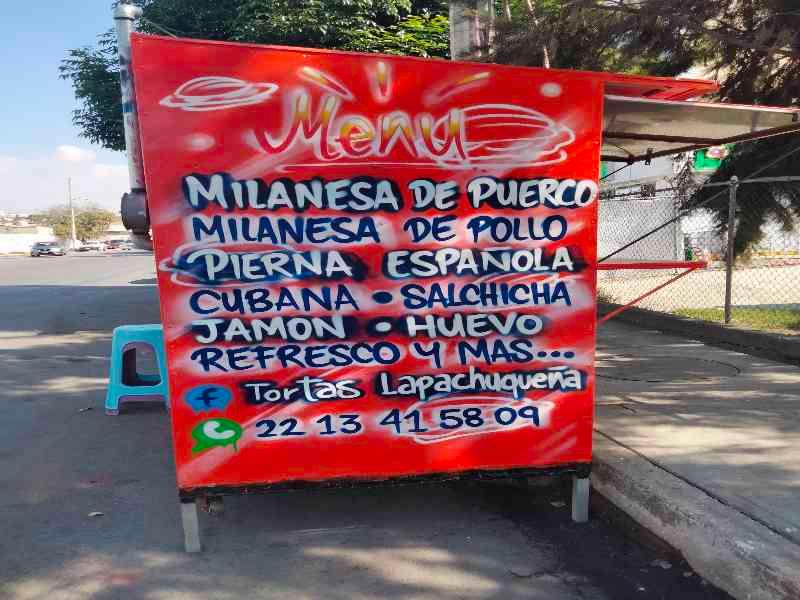 Menu
MILANESA DE PUERCO
MILANESA DE POLLO
PIERNA ESPAÑOLA
CUBANA • SALCHICHA
JAMON • HUEVO
REFRESCO Y MAS...
f Tortas Lapachuqueña
22 13 41 58 09